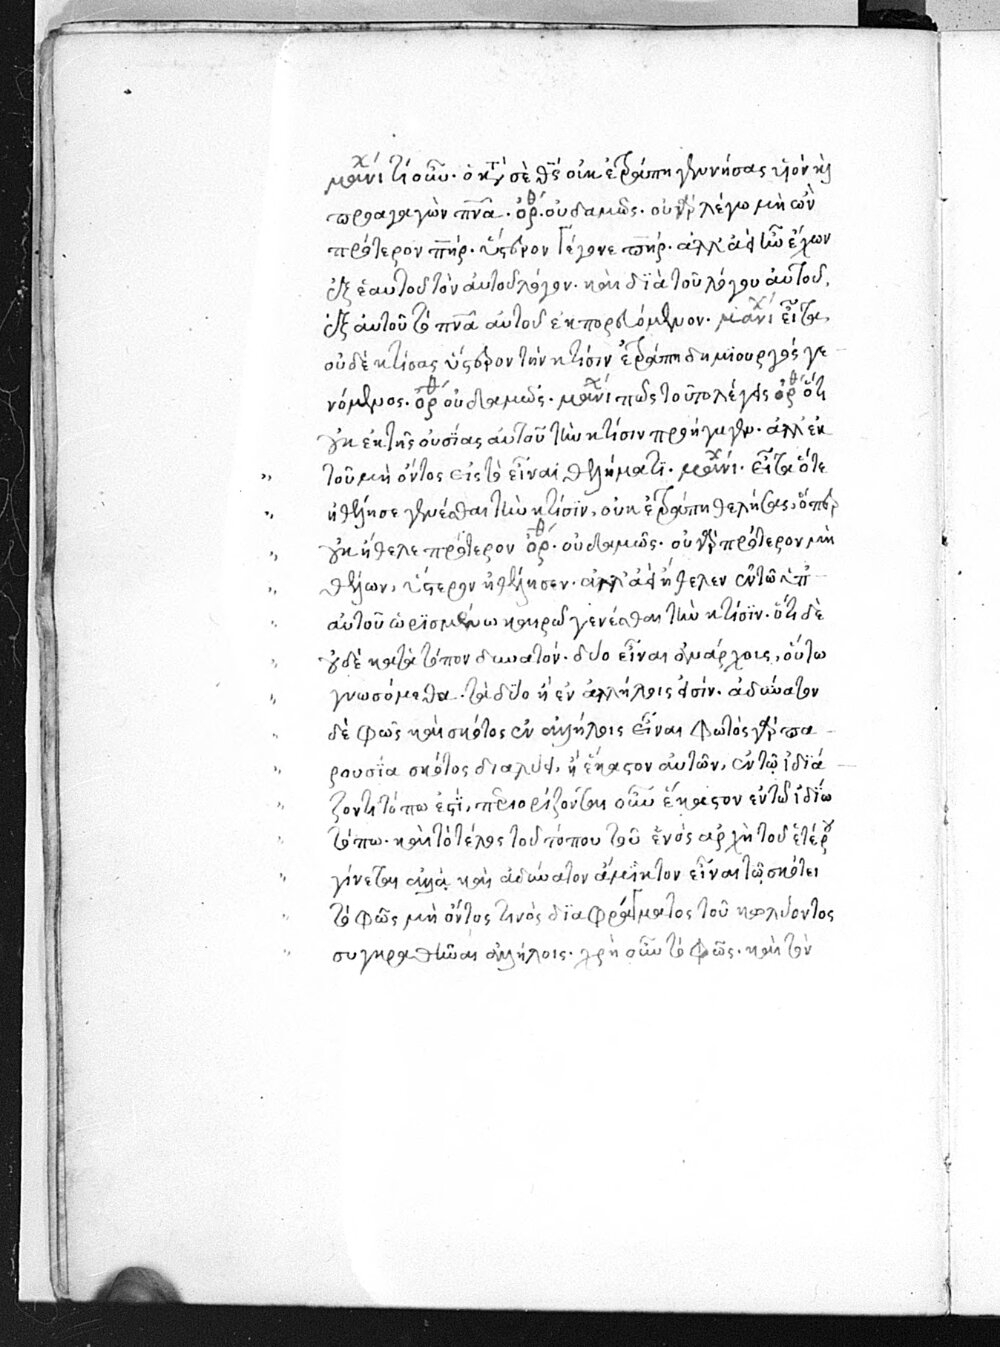 μανι τί οὖν· ὁ κατὰ σὲ θς οὐκ ἐτράπη γεννήσας υἱὸν καὶ
προαγαγὼν πνα· ὀρθ· οὐδαμῶς· οὐ γὰρ λέγω μὴ ὢν
πρότερον πηρ· ὕστερον γέγονε πηρ· ἀλλ' ἀεὶ ἦν ἔχων
ἐξ ἑαυτοῦ τὸν αὐτοῦ λόγον· καὶ διὰ τοῦ λόγου αὐτοῦ,
ἐξ αὐτοῦ τὸ πνα αὐτοῦ ἐκπορευόμενον· μανι εἶτα,
οὐδὲ κτίσας ὕστερον τὴν κτίσιν ἐτράπη δημιουργὸς γε
νόμενος· ὀρθ οὐδαμῶς· μανι πῶς τοῦτο λέγεις ὀρθ ὅτι
οὐκ ἐκ τῆς οὐσίας αὐτοῦ τὴν κτίσιν προήγαγεν· ἀλλ' ἐκ
τοῦ μὴ ὄντος εἰς τὸ εἶναι θελήματι· μανι· εἶτα ὅτε
ἠθέλησε γενέσθαι τὴν κτίσϊν, οὐκ ἐτράπη θελήσας, ὅπερ
οὐκ ἤθελε πρότερον ὀρθ· οὐδαμῶς· οὐ γὰρ πρότερον μὴ
θέλων, ὕστερον ἠθέλησεν· ἀλλ' ἀεὶ ἤθελεν ἐν τῶ ὑπ
αὐτοῦ ὡρϊσμένω καιρῶ γενέσθαι τὴν κτίσϊν· ὅτι δὲ
οὐδὲ κατὰ τόπον δυνατόν· δύο εἶναι ἐναρχοις, οὕτω
γνωσόμεθα· τὰ δύο ἢ ἐν ἀλλήλοις εἰσίν· ἀδύνατον
δὲ φῶς καὶ σκότος ἐν ἀλλήλοις εἶναι φωτὸς γὰρ πα
ρουσΐα σκότος διαλύει, ἢ ἕκαστον αὐτῶν, ἐν τῷ ἰδϊά
ζοντι τόπω ἐστΐ, περιορίζονται οὖν ἕκαστον ἐν τῶ ἰδίω
τόπω· καὶ τὸ τέλος τοῦ τόπου τοῦ ἑνὸς ἀρχὴ τοῦ ἑτέρου
γίνεται ἀλλὰ καὶ ἀδύνατον ἄμϊκτον εἶναι τῷ σκότει
τὸ φῶς μὴ ὄντος τινὸς διαφράγματος τοῦ κωλύοντος
συγκραθῆναι ἀλλήλοις· χρὴ οὖν τὸ φῶς· καὶ τὸν